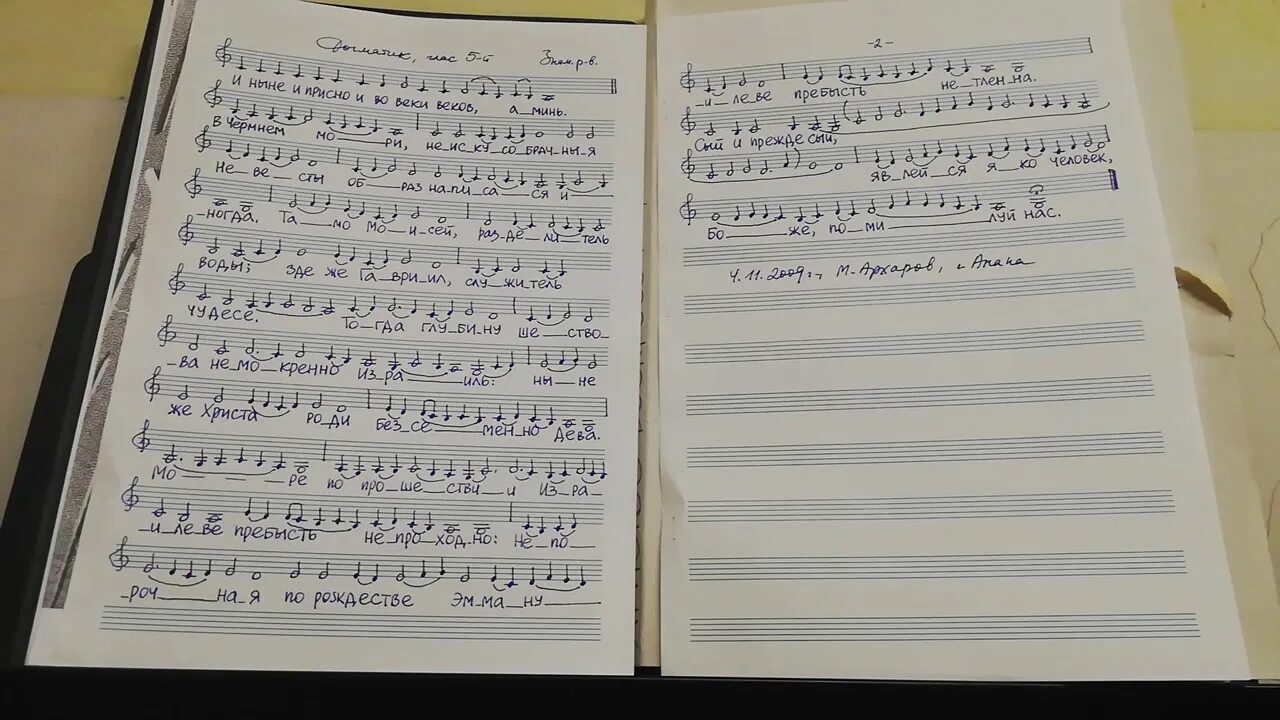 Догматик, глас 5-й Знам. р-в.
И ныне и присно и во веки веков, а_минь.
В Чермнем мо___ри, не_ис_ку_со_брач_ны_я
Не_ве__сты об___раз на_пи_са__ся и__
_ногда. Та___мо Мо__и_сей, раз_де_ли_тель
воды; зде же Га_ври_ил, слу_жи_тель
чудесе. То_гда глу_би_ну ше_ство_
_ва не_мо_кренно Из_ра___иль: ны__не
же Христа ро_ди без_се___мен_но Дева.
Мо_ _ _ре по про_ше_стви_и Из_ра_
_и_ле_ве пребысть не_про_ход_но: не_по__
_роч___на_я по рождестве Эм_ма_ну___
-2-
_и_ле_ве пребысть не_тлен_на.
Сый и прежде сый,
яв_лей_ся я_ко человек,
Бо___же, по_ми___луй нас.
4.11.2009г., М. Архаров,